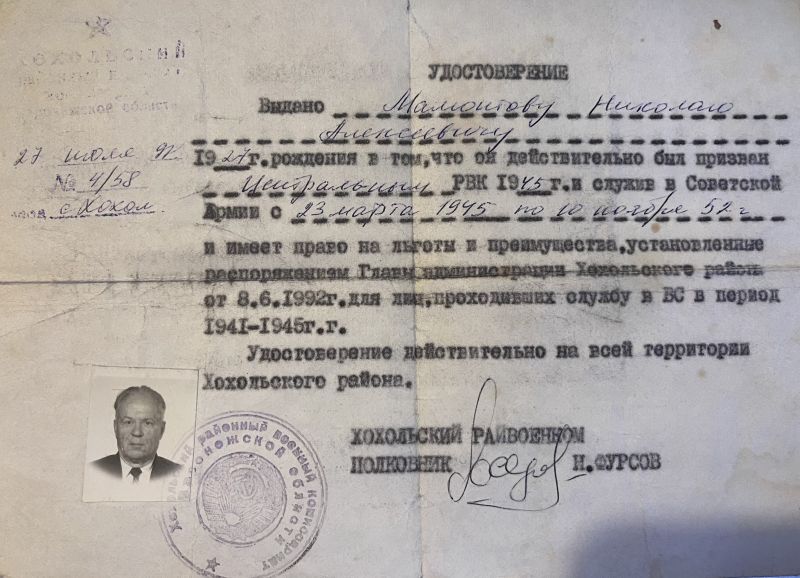 ХОХОЛЬСКИЙ
УДОСТОВЕРЕНИЕ
Выдано Мамонтову Николаю
Алексеевичу
27 июля 92.
1927г.рождения в том,что ой действительно был призван
№ 4/58
Центральным РВК 1945г.и служив в Советской
с. Хохол.
Армии с 23 марта 1945 по 10 ноября 52 г
и имеет право на льготы и преимущества,установленные
распоряжением Главы администрации Хохольского района
от 8.6.1992г.для лиц,проходивших службу в ВС в период
1941-1945г.г.
Удостоверение действительно на всей территории
Хохольского района.
ХОХОЛЬСКИЙ РАЙВОЕНКОМ
ПОЛКОВНИК Н.ФУРСОВ
ХОХОЛЬСКИЙ РАЙОННЫЙ ВОЕННЫЙ КОМИССАРИАТ
ВОРОНЕЖСКОЙ ОБЛАСТИ